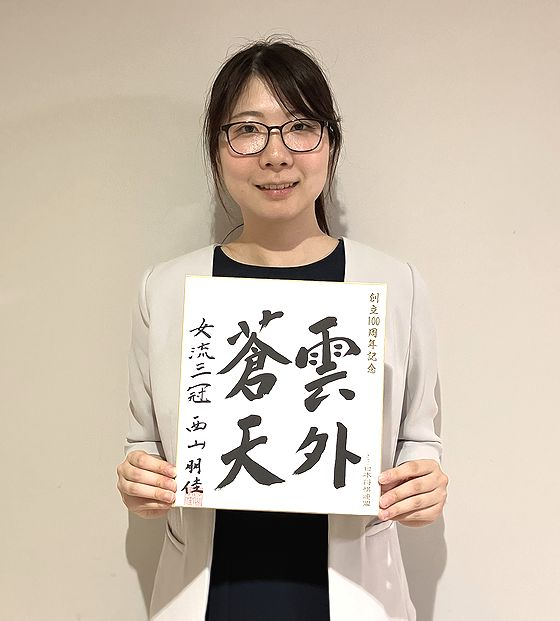 創立100周年記念
雲外
蒼天
女流三冠 西山朋佳
日本将棋連盟